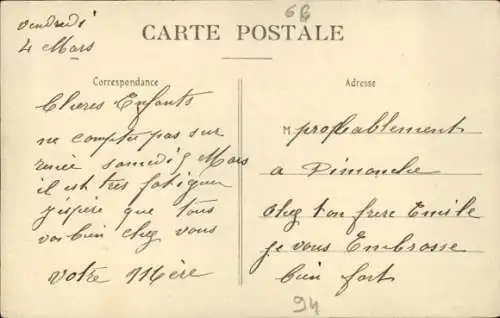 66
vendredi
4 Mars
CARTE POSTALE
Correspondance
Chères Enfants
ne compter pas sur
renée samedi 5 Mars
il est très fatiguer
j'espère que tous
vas bien chez vous
votre Mère
Adresse
M. probeablement
a Dimanche
chez ton frere Emile
je vous Embrosse
bien fort
94